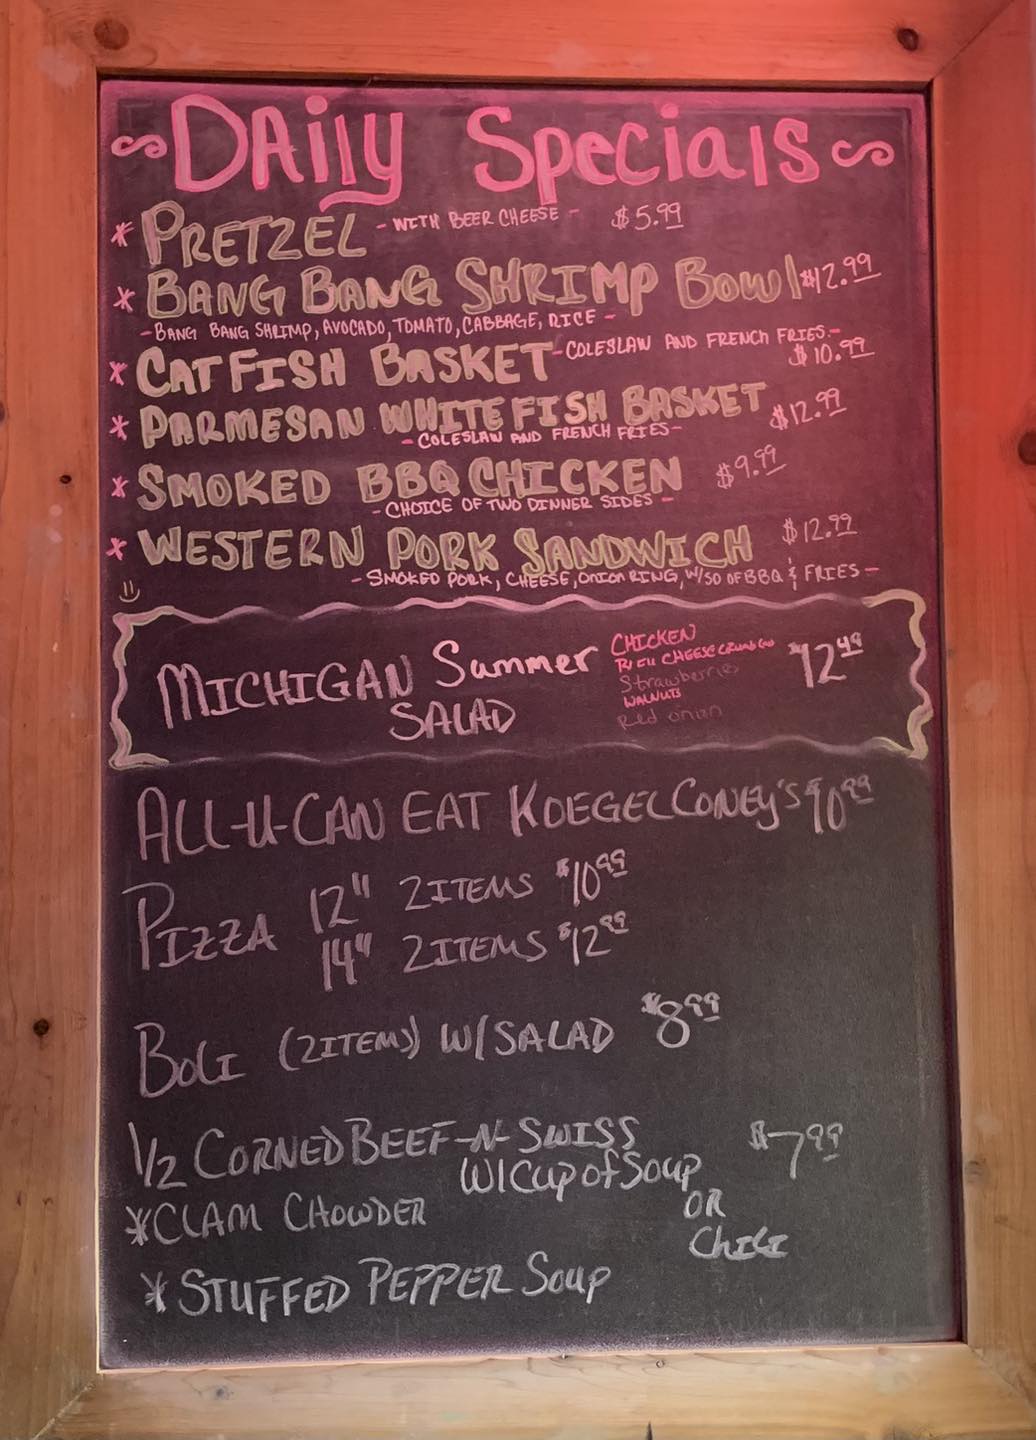 DAily Specials
* PRETZEL - WITH BEER CHEESE - $5.99
* BANG BANG SHRIMP Bowl $12.99
- BANG BANG SHRIMP, AVOCADO, TOMATO, CABBAGE, RICE -
* CATFISH BASKET - COLESLAW AND FRENCH FRIES. -
$10.99
* PARMESAN WHITE FISH BASKET $12.99
- COLESLAW AND FRENCH FRIES -
* SMOKED BBQ CHICKEN $9.99
- CHOICE OF TWO DINNER SIDES -
* WESTERN PORK SANDWICH $12.99
- SMOKED PORK, CHEESE, ONION RING, W/SO OF BBQ & FRIES -
MICHIGAN Summer SALAD
CHICKEN
CHEESE
Strawberries
WALNUTS
Red onion
$12.49
ALL-U-CAN EAT KOEGEL CONEY'S $10.99
PIZZA 12" 2 ITEMS $10.99
14" 2 ITEMS $12.99
BOLI (2 ITEM) W/SALAD $8.99
1/2 CORNED BEEF-N-SWISS $7.99
W/Cup of Soup
OR
Chili
*CLAM CHOWDER
*STUFFED PEPPER Soup